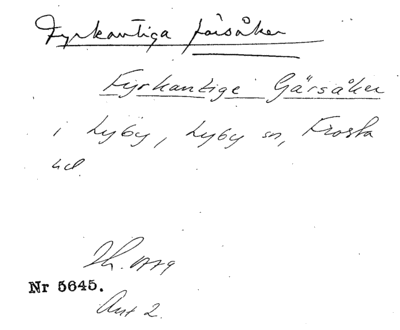 Fyrkantiga järsåker
Fyrkantige Gärsåker
i Lyby, Lyby sn, Frosta
hd.
Nr 5645.
Ant 2.